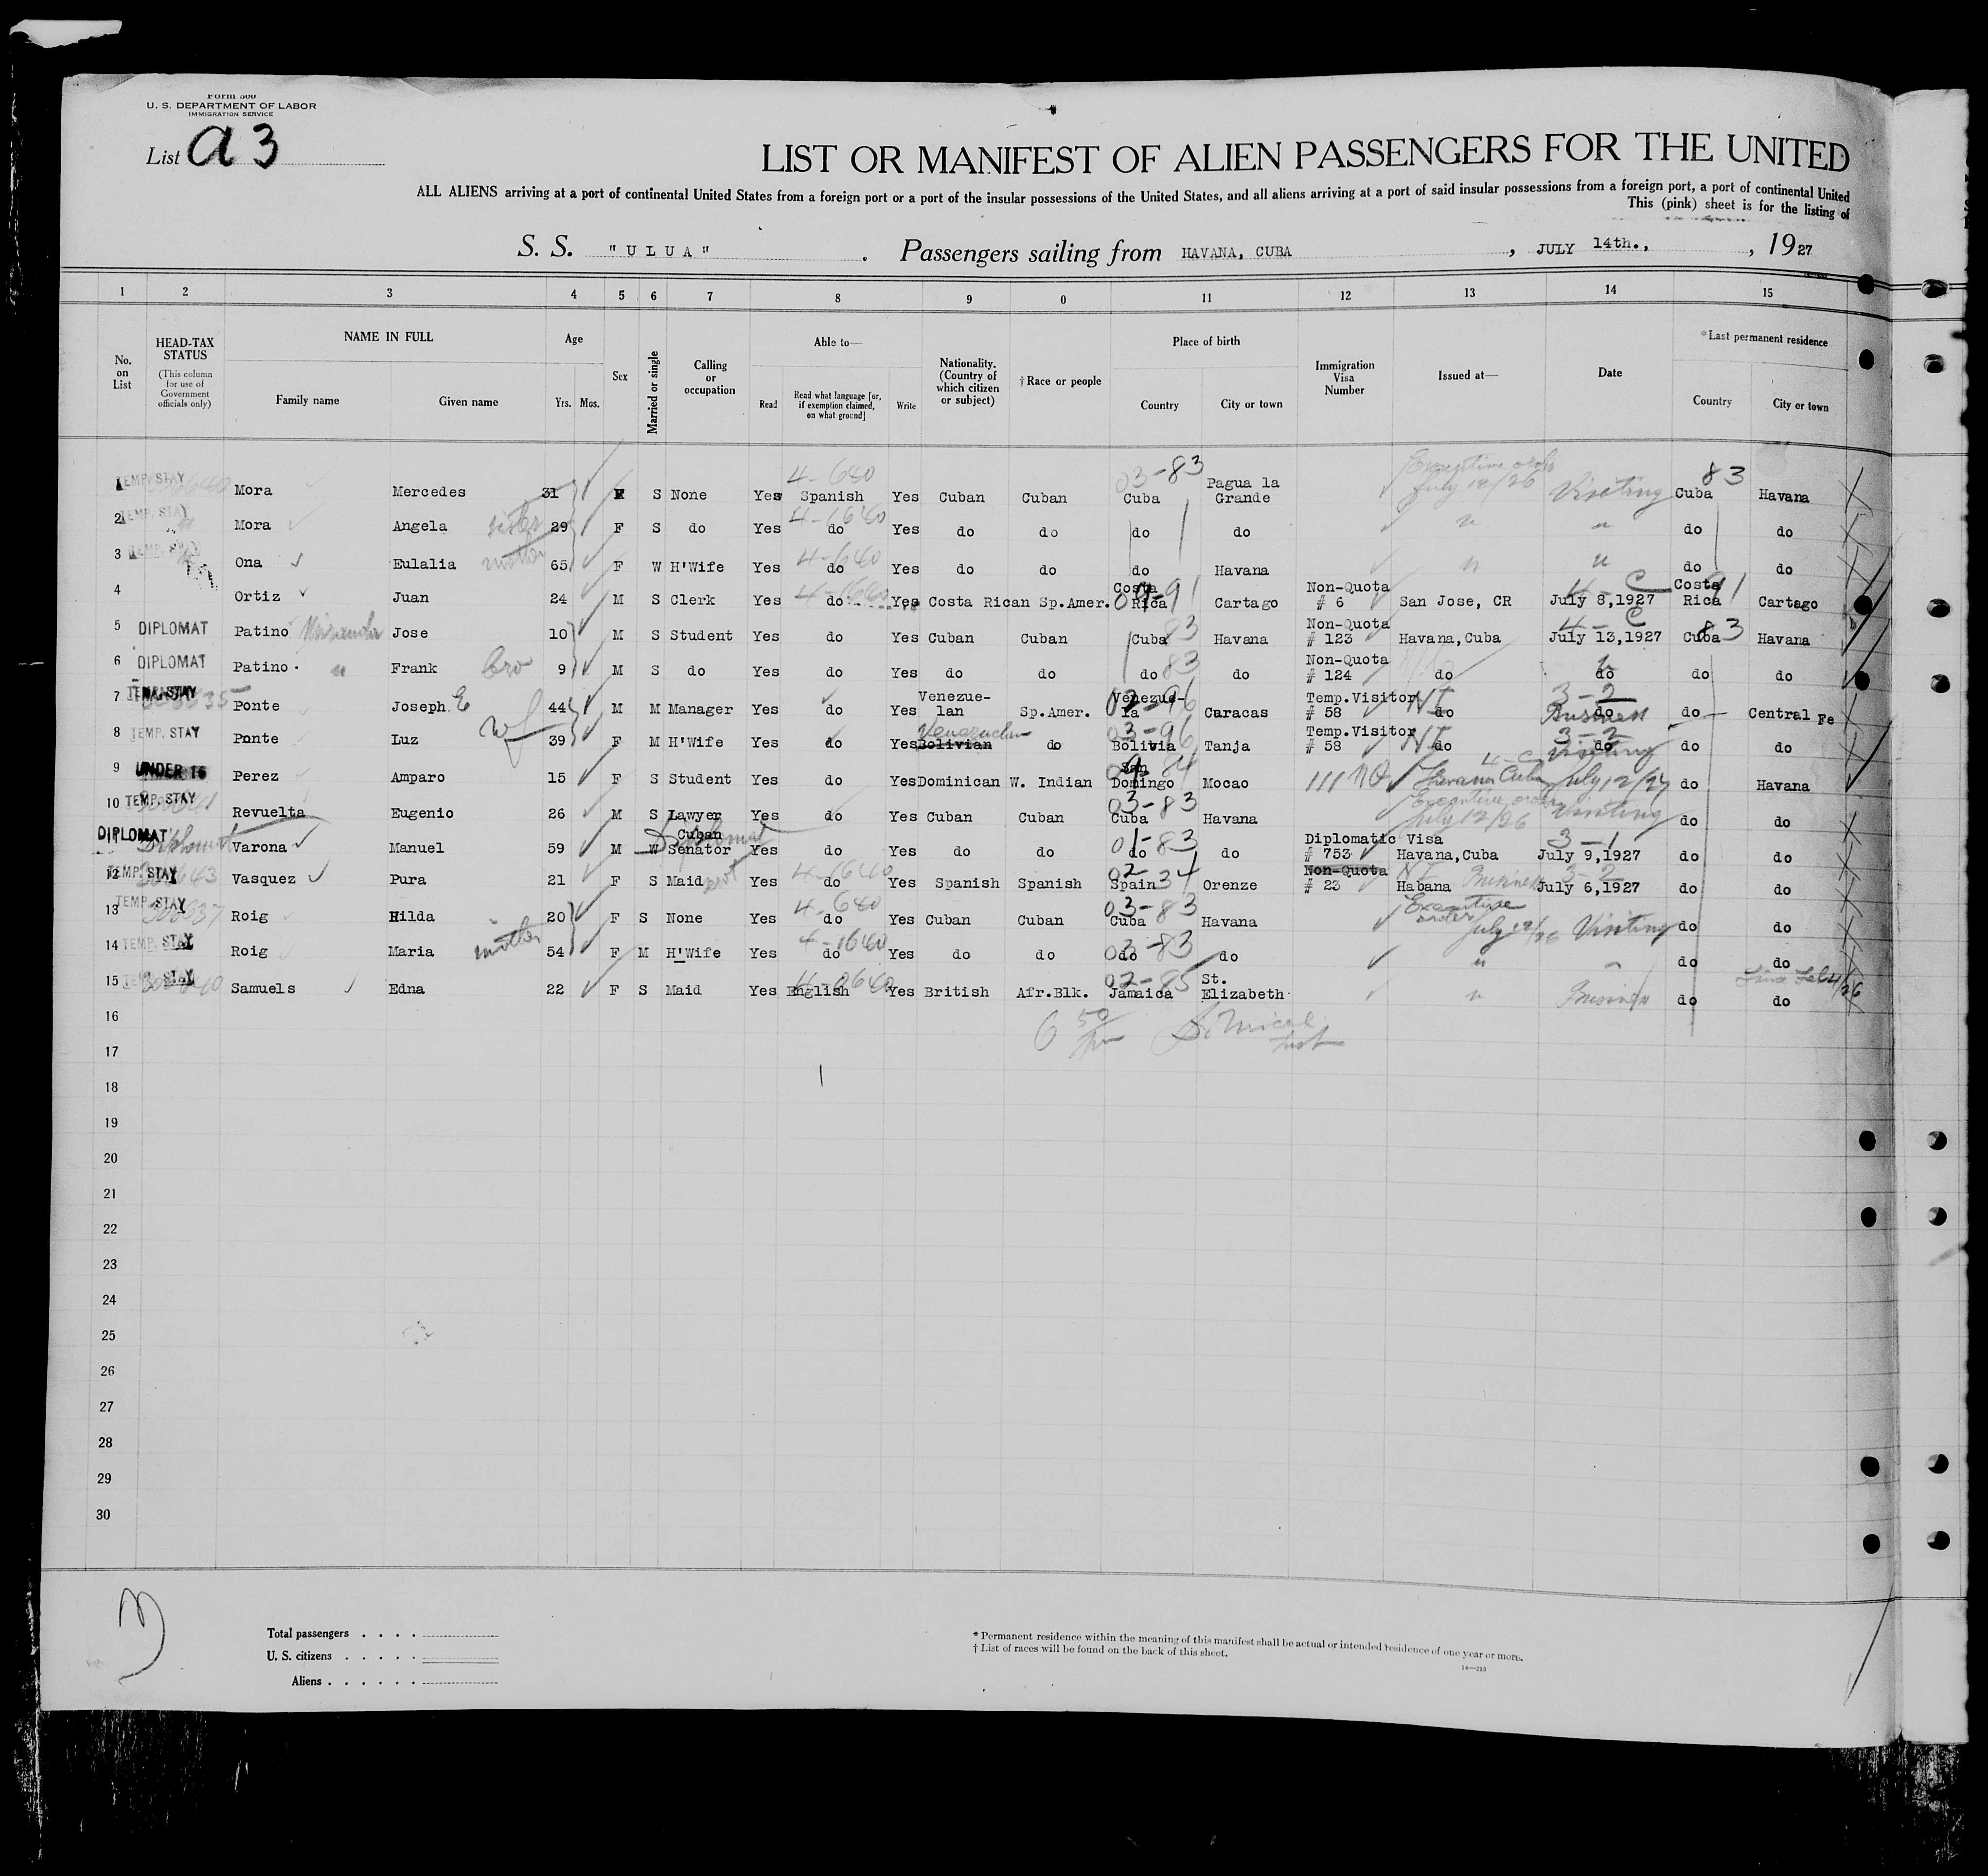 Form 500
U. S. DEPARTMENT OF LABOR
IMMIGRATION SERVICE
List a 3
LIST OR MANIFEST OF ALIEN PASSENGERS FOR THE UNITED
ALL ALIENS arriving at a port of continental United States from a foreign port or a port of the insular possessions of the United States, and all aliens arriving at a port of said insular possessions from a foreign port, a port of continental United
This (pink) sheet is for the listing of
S. S. "ULUA" . Passengers sailing from HAVANA, CUBA , JULY 14th., , 1927
1 2 3 4 5 6 7 8 9 0 11 12 13 14 15
No. on List
HEAD-TAX STATUS (This column for use of Government officials only)
NAME IN FULL Family name Given name
Age Yrs. Mos.
Sex
Married or single
Calling or occupation
Able to— Read Read what language [or, if exemption claimed, on what ground] Write
Nationality. (Country of which citizen or subject)
†Race or people
Place of birth Country City or town
Immigration Visa Number
Issued at—
Date
*Last permanent residence Country City or town
TEMP. STAY Mora Mercedes 31 F S None Yes 4-640 Spanish Yes Cuban Cuban 03-83 Cuba Pagua la Grande Executive order July 12/26 Visiting 83 Cuba Havana
2 TEMP. STAY Mora Angela sister 29 F S do Yes 4-1640 do Yes do do do do " " do do
3 TEMP. STAY Ona Eulalia mother 65 F W H'Wife Yes 4-640 do Yes do do do Havana " " do do
4 Ortiz Juan 24 M S Clerk Yes 4-1640 do Yes Costa Rican Sp.Amer. Costa Rica 09-91 Cartago Non-Quota # 6 San Jose, CR 4-C July 8,1927 Costa Rica 91 Cartago
5 DIPLOMAT Patino Jose 10 M S Student Yes do Yes Cuban Cuban Cuba 83 Havana Non-Quota # 123 Havana,Cuba 4-C July 13,1927 Cuba 83 Havana
6 DIPLOMAT Patino " Frank bro 9 M S do Yes do Yes do do do 83 do Non-Quota # 124 do do do do
7 TEMP. STAY Ponte Joseph E 44 M M Manager Yes do Yes Venezue-lan Sp.Amer. Venezue-la 02-96 Caracas Temp.Visitor # 58 NI do 3-2 do Business do Central Fe
8 TEMP. STAY Ponte Luz wf 39 F M H'Wife Yes do Yes Bolivian Venezuelan do 03-96 Bolivia Tanja Temp.Visitor # 58 NI do 3-2 do Visiting do do
9 UNDER 16 Perez Amparo 15 F S Student Yes do Yes Dominican W. Indian San Domingo 09-84 Mocao 111 NQ Havana Cuba 4-C July 12/27 do Havana
10 TEMP. STAY Revuelta Eugenio 26 M S Lawyer Yes do Yes Cuban Cuban 03-83 Cuba Havana Executive order July 12/26 Visiting do do
DIPLOMAT Diplomat Varona Manuel 59 M W Cuban Senator Diplomat Yes do Yes do do 01-83 do do Diplomatic Visa # 753 Havana,Cuba 3-1 July 9,1927 do do
12 TEMP. STAY Vasquez Pura 21 F S Maid Yes 4-1640 do Yes Spanish Spanish 02-34 Spain Orenze Non-Quota # 23 Habana NI Business 3-2 July 6,1927 do do
13 TEMP. STAY Roig Hilda 20 F S None Yes 4-640 do Yes Cuban Cuban 03-83 Cuba Havana Executive order July 12/26 Visiting do do
14 TEMP. STAY Roig Maria mother 54 F M H'Wife Yes 4-1640 do Yes do do 03-83 do do " " do do
15 TEMP. STAY Samuels Edna 22 F S Maid Yes English Yes British Afr.Blk. 02-85 Jamaica St. Elizabeth " Business do do
16
6 50
17
18
19
20
21
22
23
24
25
26
27
28
29
30
Total passengers . . . .
U. S. citizens . . . . .
Aliens . . . . . .
* Permanent residence within the meaning of this manifest shall be actual or intended residence of one year or more.
† List of races will be found on the back of this sheet.
14—313